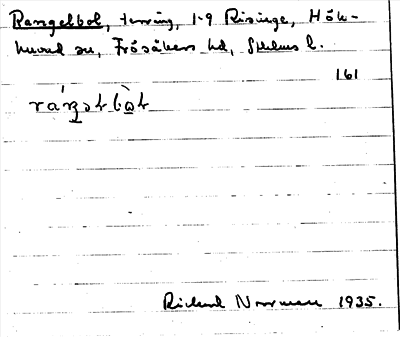 Rangelbol, terräng, 1-9 Risinge, Hök-
huvud sn, Frösåkers hd, Sthlms l.
161
Rickard Norrman 1935.